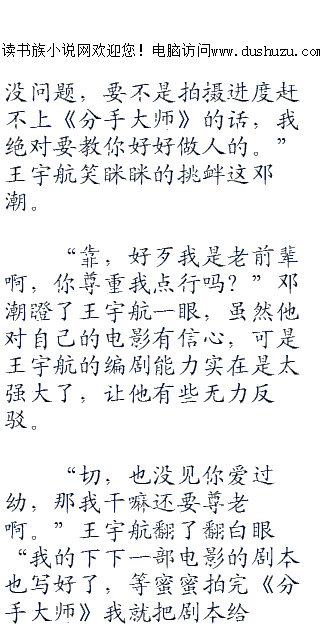 读书族小说网欢迎您！电脑访问www.dushuzu.com
没问题，要不是拍摄进度赶
不上《分手大师》的话，我
绝对要教你好好做人的。”
王宇航笑眯眯的挑衅这邓
潮。
“靠，好歹我是老前辈
啊，你尊重我点行吗？”邓
潮瞪了王宇航一眼，虽然他
对自己的电影有信心，可是
王宇航的编剧能力实在是太
强大了，让他有些无力反
驳。
“切，也没见你爱过
幼，那我干嘛还要尊老
啊。”王宇航翻了翻白眼
“我的下下一部电影的剧本
也写好了，等蜜蜜拍完《分
手大师》我就把剧本给